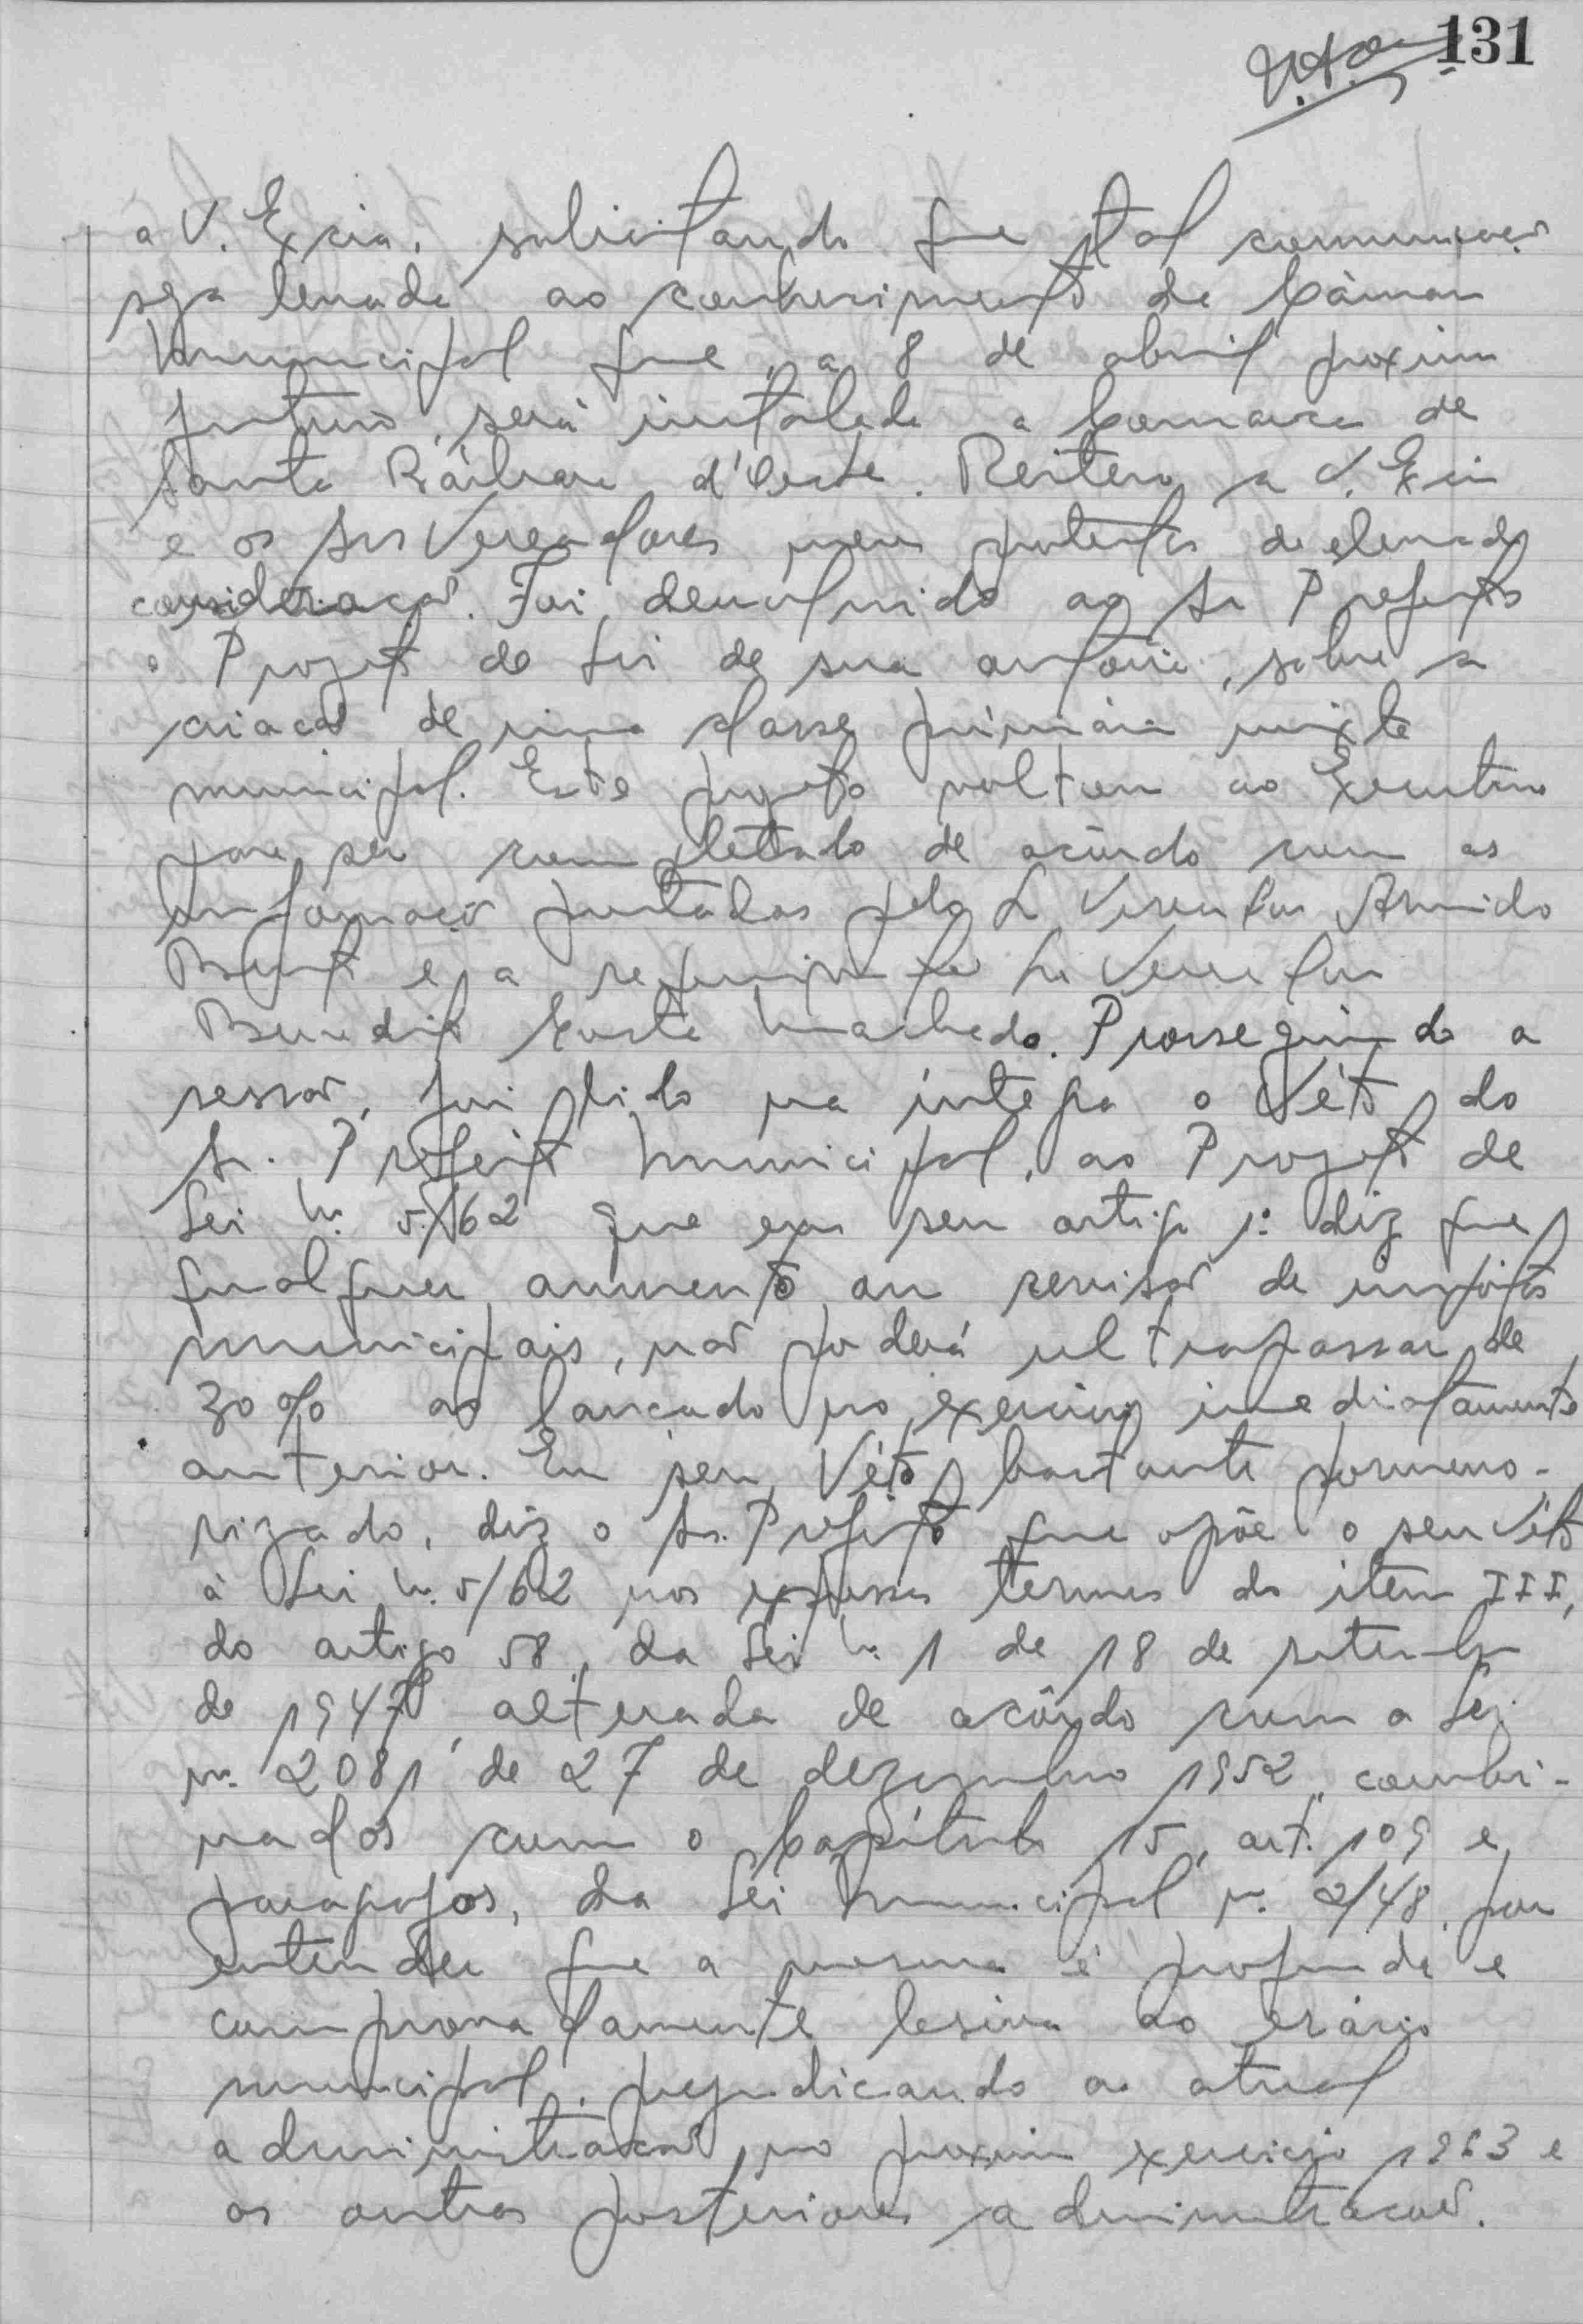 131
a V. Excia. solicitando que tal comunicação
seja levada ao conhecimento da Câmara
Municipal que, a 8 de abril proximo
futuro, será instalada a Comarca de
Santa Bárbara d'Oeste. Reitero a V. Excia
e os Srs Vereadores meus protestos de elevada
consideração. Foi devolvido ao Sr Prefeito
o Projeto de Lei de sua autoria, sobre a
criação de uma classe primária mixta
municipal. Este projeto voltou ao Executivo
para ser completado de acôrdo com as
informações prestadas pelo Sr Vereador Armindo
e a Sr Vereador
Benedito Costa Machado. Prosseguindo a
sessão, foi lido na íntegra o Véto do
Sr. Prefeito Municipal, ao Projeto de
Lei n. 5/62 que em seu artigo 1º diz que
qualquer aumento ou revisão de impostos
municipais, não poderá ultrapassar de
30% ao lançado no exercicio imediatamente
anterior. Em seu Véto, bastante pormeno-
rizado, diz o Sr. Prefeito que opõe o seu Véto
à Lei n. 5/62 nos expressos termos do item III,
do artigo 58, da Lei n. 1 de 18 de setembro
de 1947, alterada de acôrdo com a Lei
n. 2081 de 27 de dezembro 1952, combi-
nados com o Capítulo 15, art. 109 e
paragrafos, da Lei Municipal n. 2/48, por
entender que a mesma é profunda e
comprovadamente lesiva ao erário
municipal, prejudicando a atual
administração no proximo exercicio 1963 e
as outras posteriores administrações.